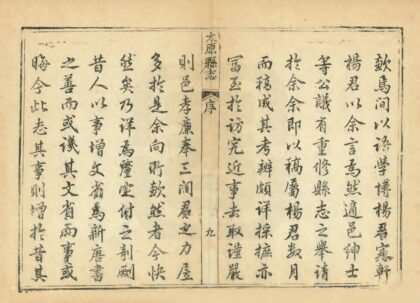 歉焉間以語學博楊君憲軒
楊君以余言為然適邑紳士
等公議有重修縣志之舉請
於余余即以稿屬楊君數月
而稿成其考辨頗詳採摭亦
富至於訪究近事去取謹嚴
太原縣志
序
九
則邑孝廉奉三閻君之力居
多於是余向所歉然者今快
然矣乃詳為釐定付之剞劂
昔人以事增文省為新唐書
之善而或譏其文省而事或
晦今此志其事則增於昔其